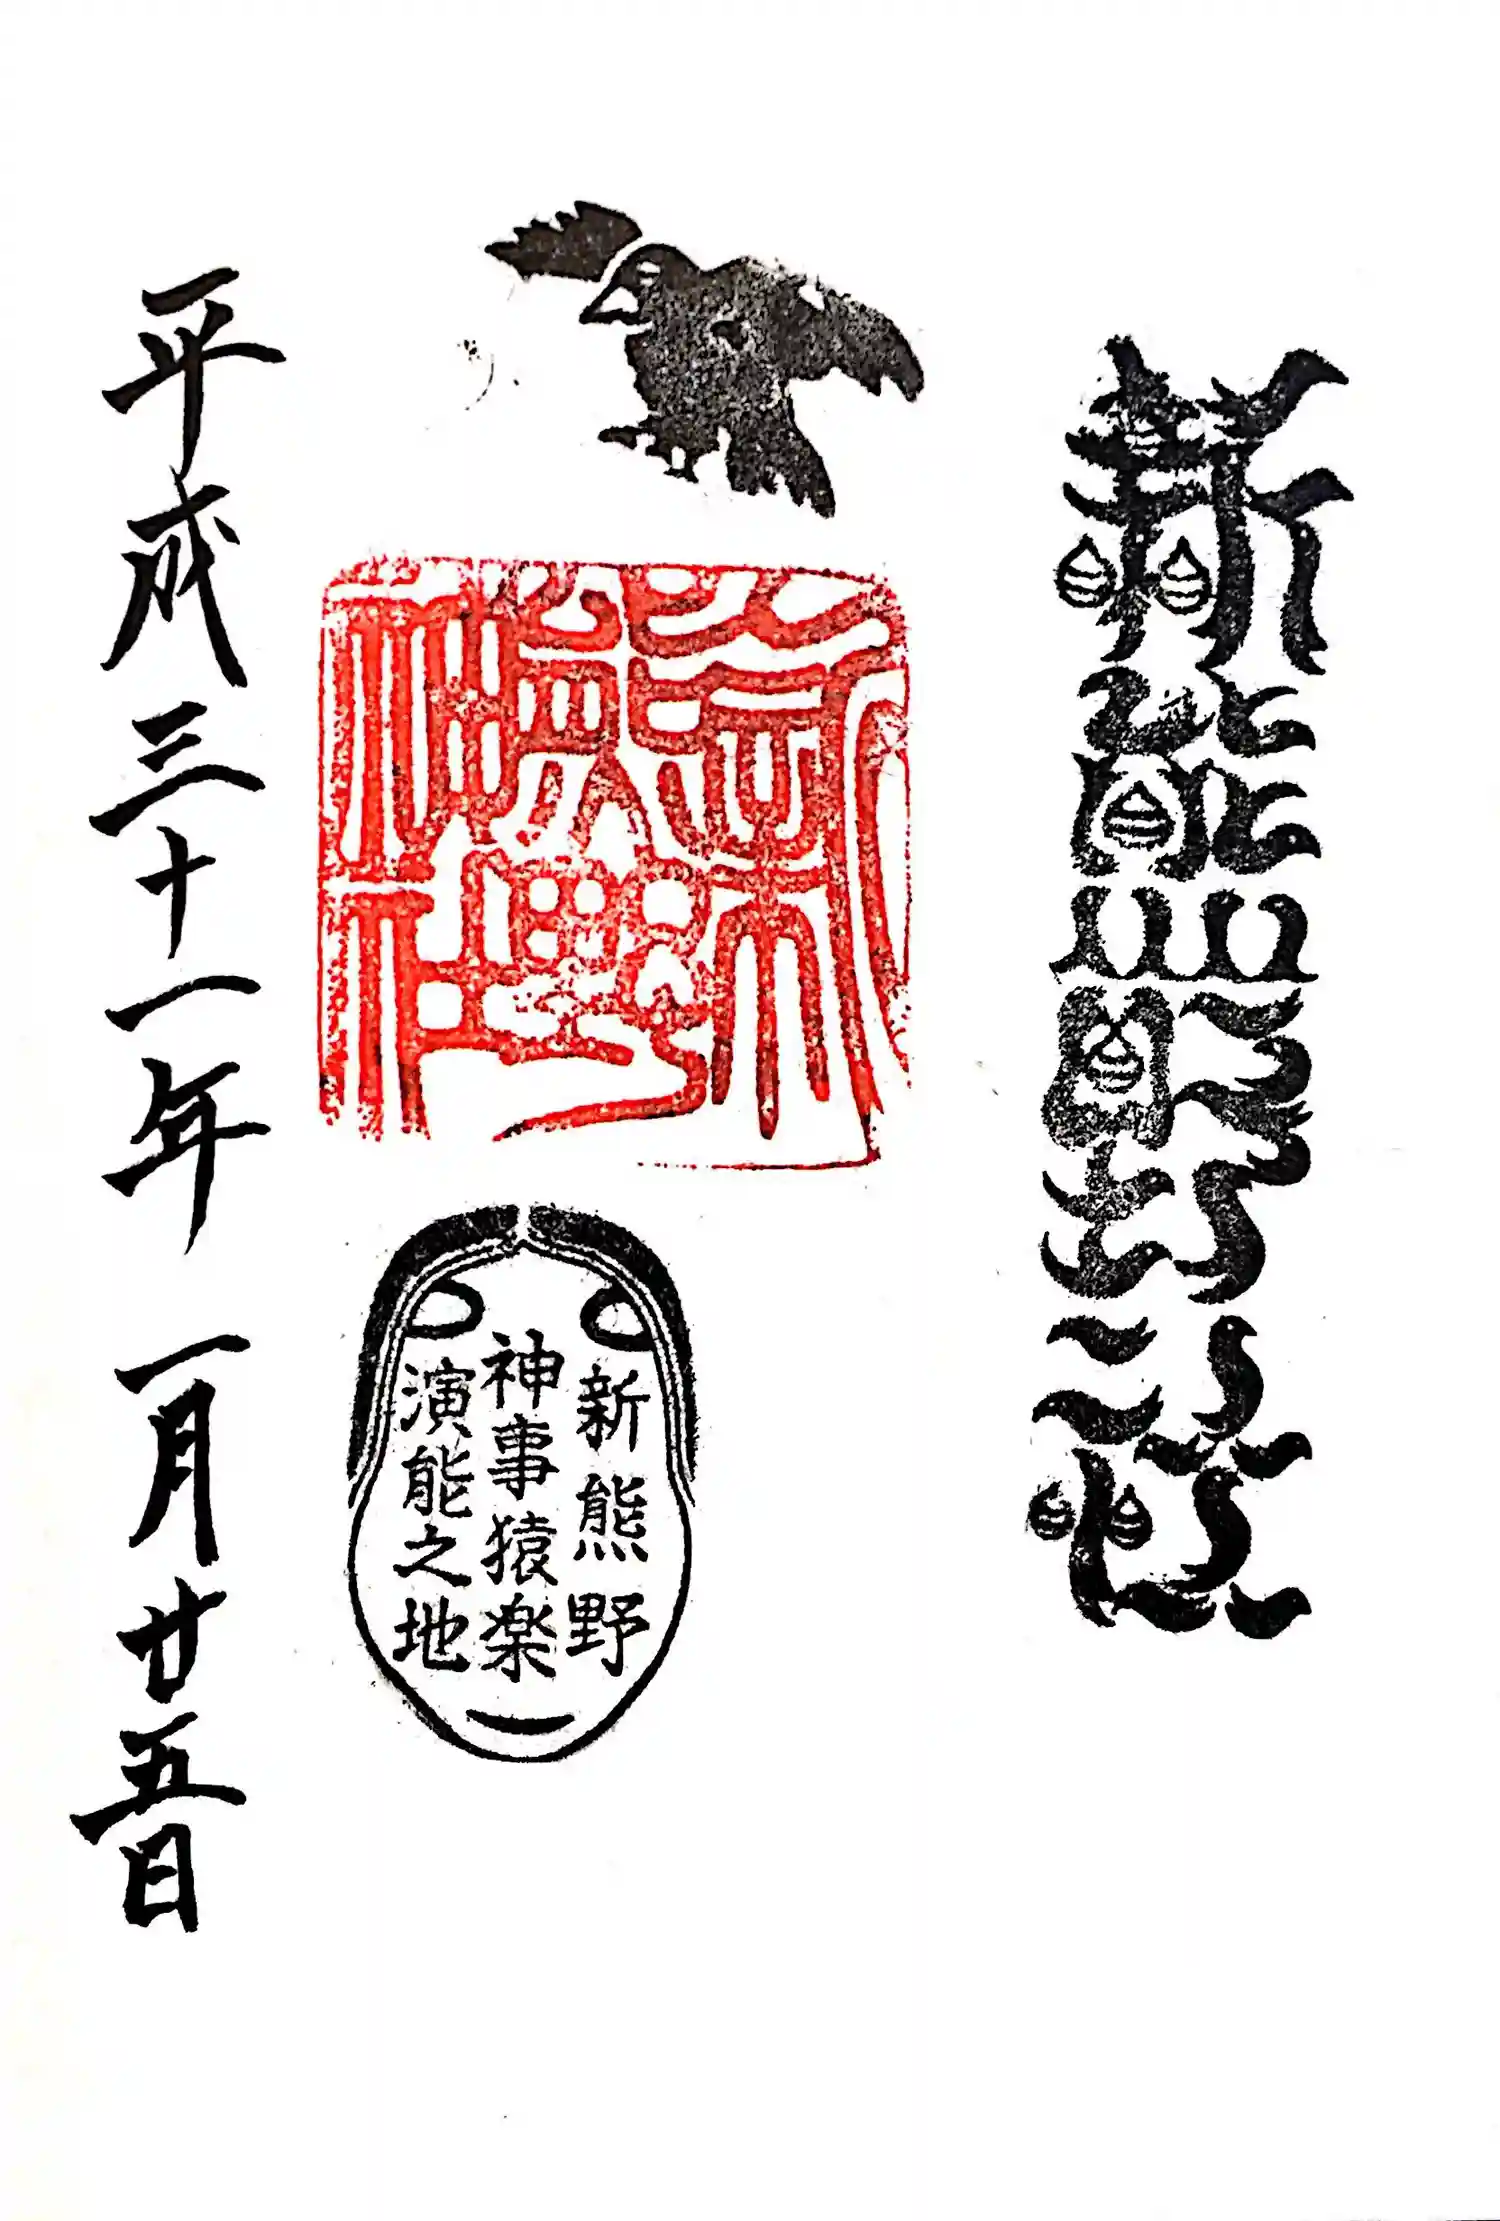 新熊野
新
熊野
神社
新熊野
神事猿楽
演能之地
平成三十一年一月廿五日